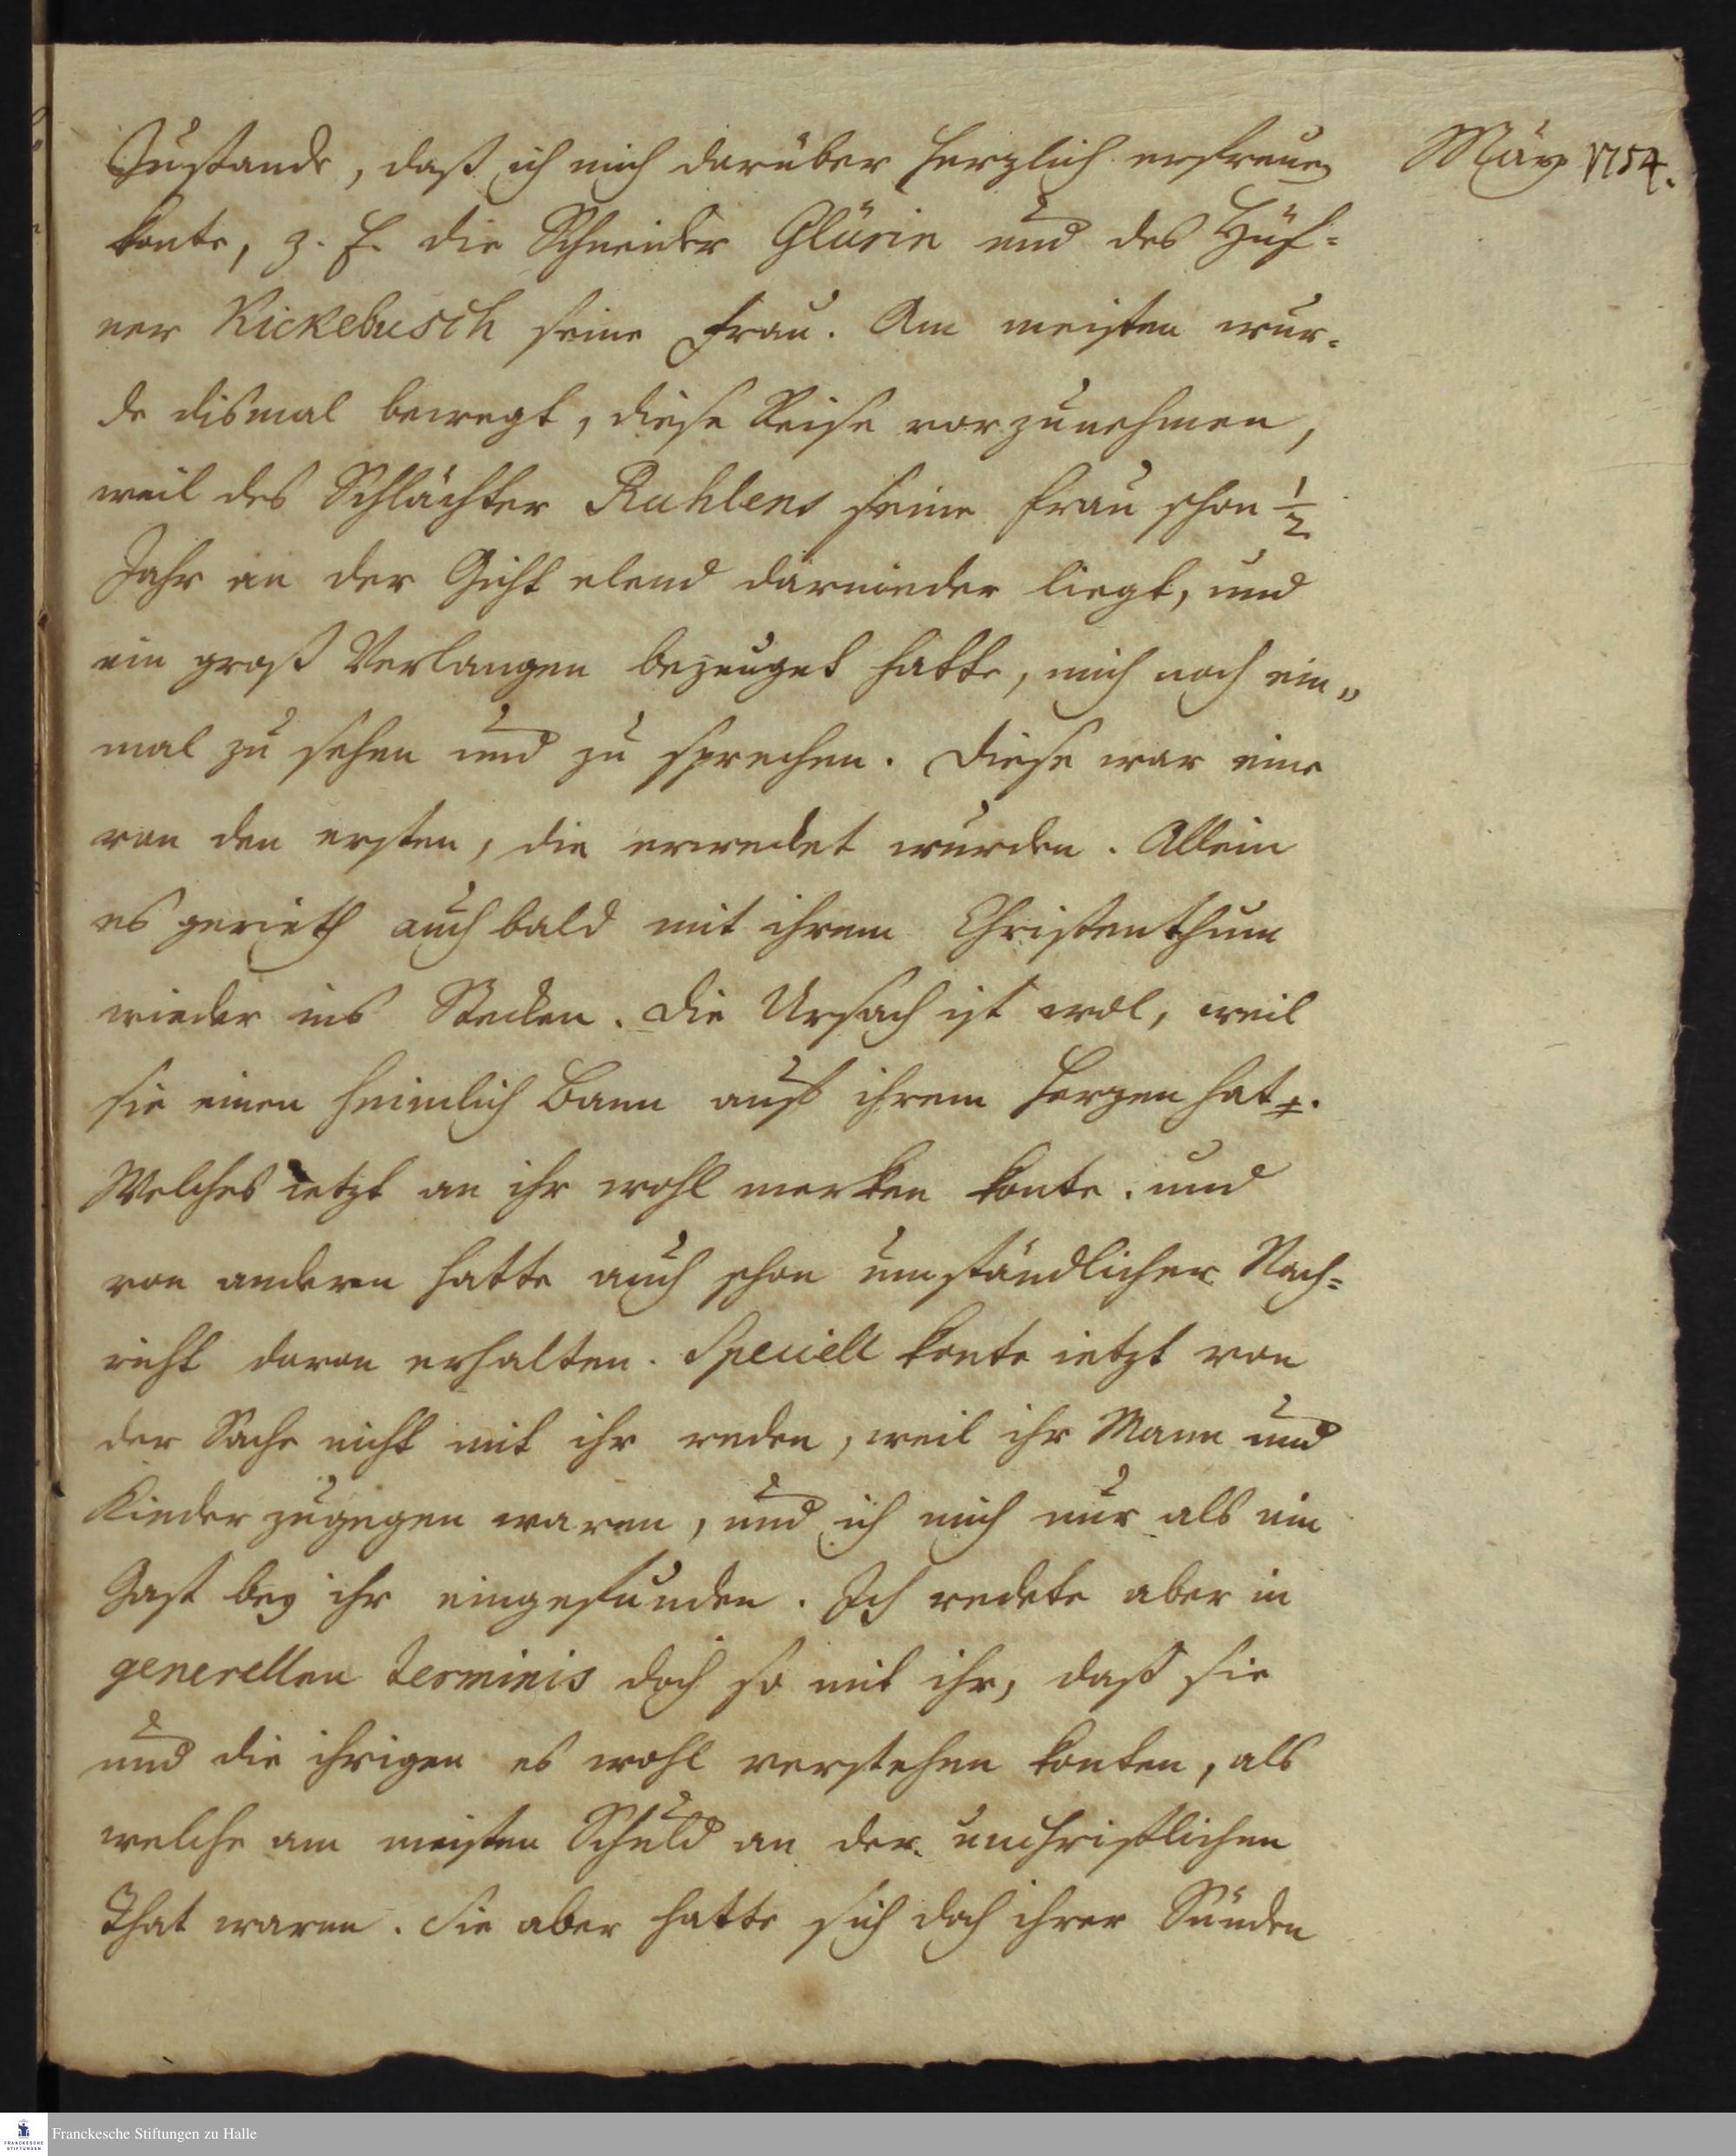 Zustande, daß ich mich darüber herzlich erfreuen
März 1754.
konte, z. E. die Schneider Glürin und des Hüf=
ner Rickebusch seine Frau. Am meisten wur=
de dismal bewegt, diese Reise vorzunehmen,
weil des Schlächter Ruhlens seine Frau schon 1/2
Jahr an der Gicht elend darnieder liegt, und
ein groß Verlangen bezeuget hatte, mich noch ein„
mal zu sehen und zu sprechen. Diese war eine
von den ersten, die erwecket wurden. Allein
es gerieth auch bald mit ihrem Christenthum
wieder ins Stecken. Die Ursach ist wol, weil
sie einen heimlich Bann auf ihrem Herzen hat.
Welches ietzt an ihr wohl merken konte. und
von andern hatte auch schon umständlicher Nach=
richt davon erhalten. Speciell konte ietzt von
der Sache nicht mit ihr reden, weil ihr Mann und
Kinder zugegen waren, und ich mich nur als ein
Gast bey ihr eingefunden. Ich redete aber in
generellen terminis doch so mit ihr, daß sie
und die ihrigen es wohl verstehen konten, als
welche am meisten Schuld an der unchristlichen
That waren. Sie aber hatte sich doch ihrer Sünden
Franckesche Stiftungen zu Halle